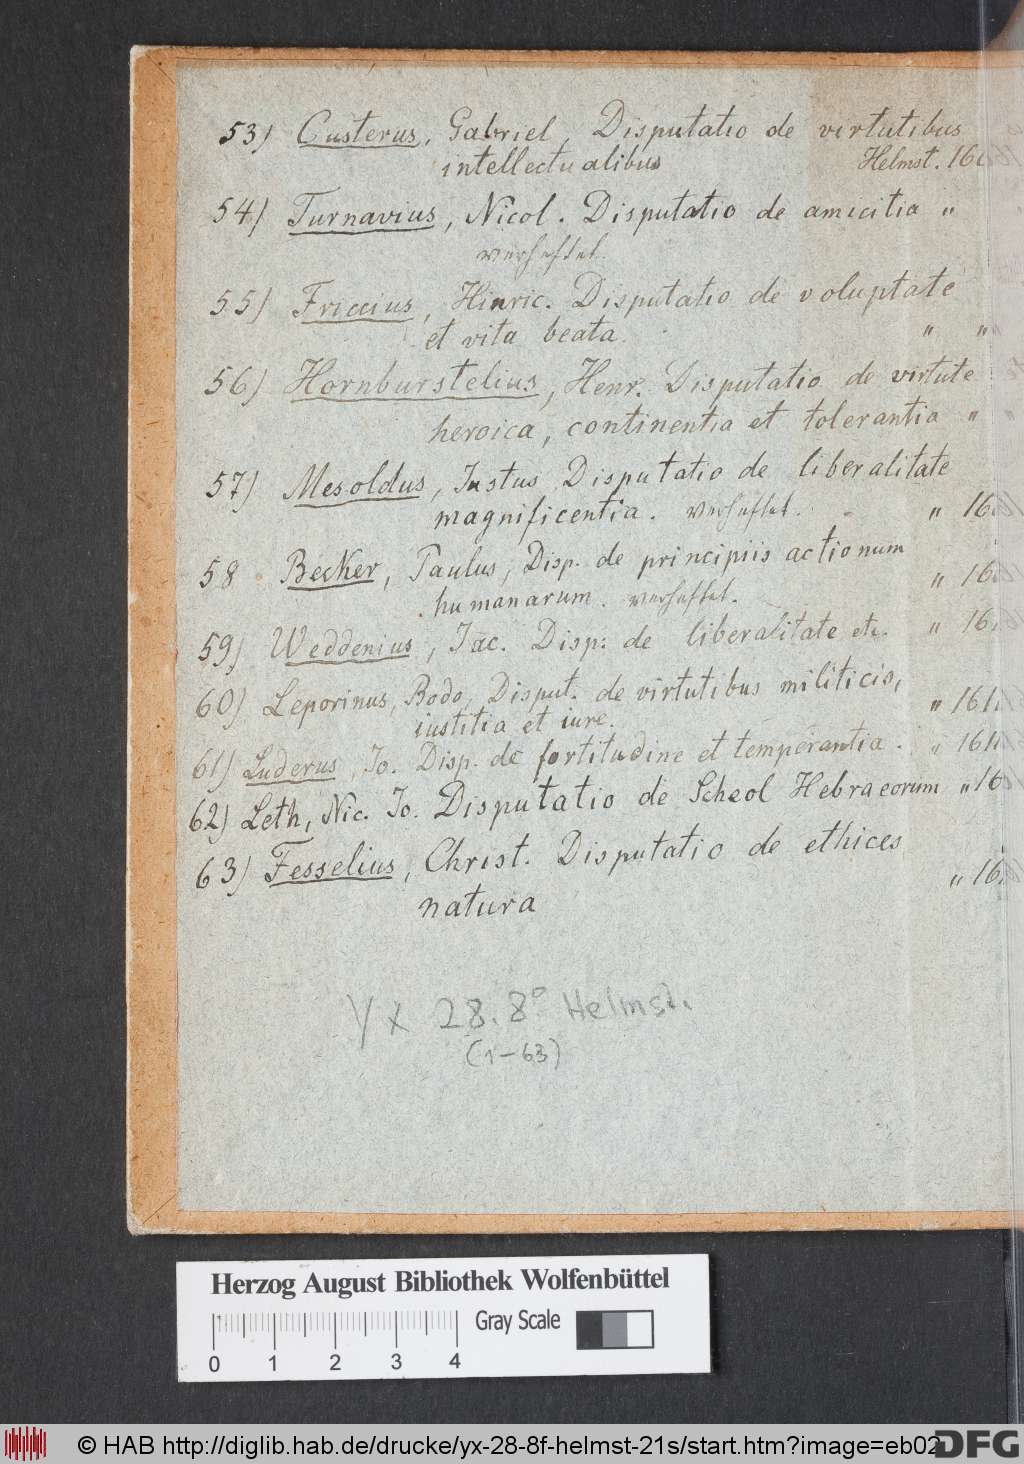 53) Custerus, Gabriel, Disputatio de virtutibus
intellectualibus Helmst. 160
54) Turnavius, Nicol. Disputatio de amicitia "
verheftet.
55) Friccius, Hinric. Disputatio de voluptate
et vita beata. " "
56) Hornburstelius, Henr. Disputatio de virtute
heroica, continentia et tolerantia "
57) Mesoldus, Justus Disputatio de liberalitate
magnificentia. verheftet. " 16
58 Becker, Paulus, Disp. de principiis actionum
humanarum. verheftet. " 16
59) Weddenius, Jac. Disp: de liberalitate etc. " 16
60) Leporinus, Bodo, Disput. de virtutibus militicis,
iustitia et iure. " 161
61) Luderus, Io. Disp. de fortitudine et temperantia. " 161
62) Leth, Nic. Jo. Disputatio de Scheol Hebraeorum " 16
63) Fesselius, Christ. Disputatio de ethices
natura " 16
Yx 28.8° Helmst.
(1-63)
Herzog August Bibliothek Wolfenbüttel
Gray Scale
0 1 2 3 4
© HAB http://diglib.hab.de/drucke/yx-28-8f-helmst-21s/start.htm?image=eb02
DFG